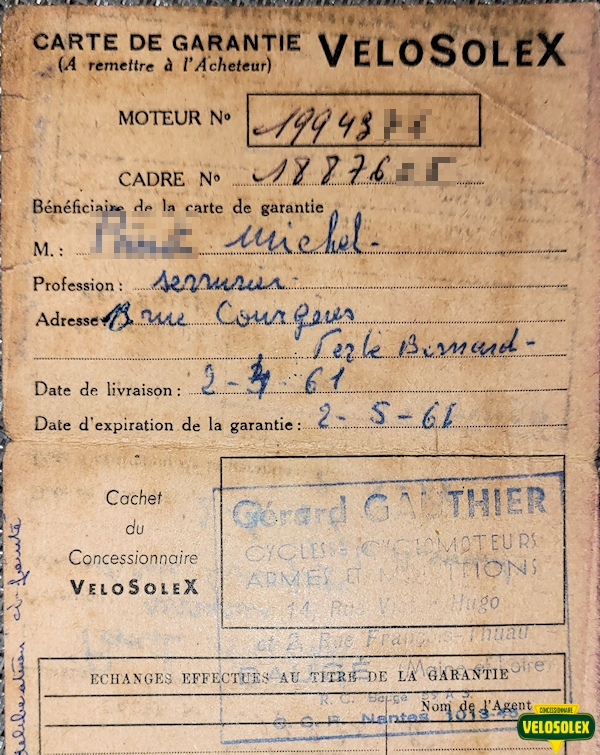 CARTE DE GARANTIE VELOSOLEX
(A remettre à l'Acheteur)
MOTEUR No 19943
CADRE No 18876
Bénéficiaire de la carte de garantie
M. : Michel
Profession : serrurier
Adresse rue
Bernard
Date de livraison : 2-4-61
Date d'expiration de la garantie : 2-5-61
Cachet
du
Concessionnaire
VELOSOLEX
Gérard GAUTHIER
CYCLES - CYCLOMOTEURS
ARMES ET MUNITIONS
14, Rue Victor-Hugo
et 2, Rue François-Thuau
BAUGÉ (Maine et Loire)
ECHANGES EFFECTUES AU TITRE DE LA GARANTIE
Nom de l'Agent
R. C. Baugé
C. C. P. Nantes 1013
CONCESSIONNAIRE
VELOSOLEX